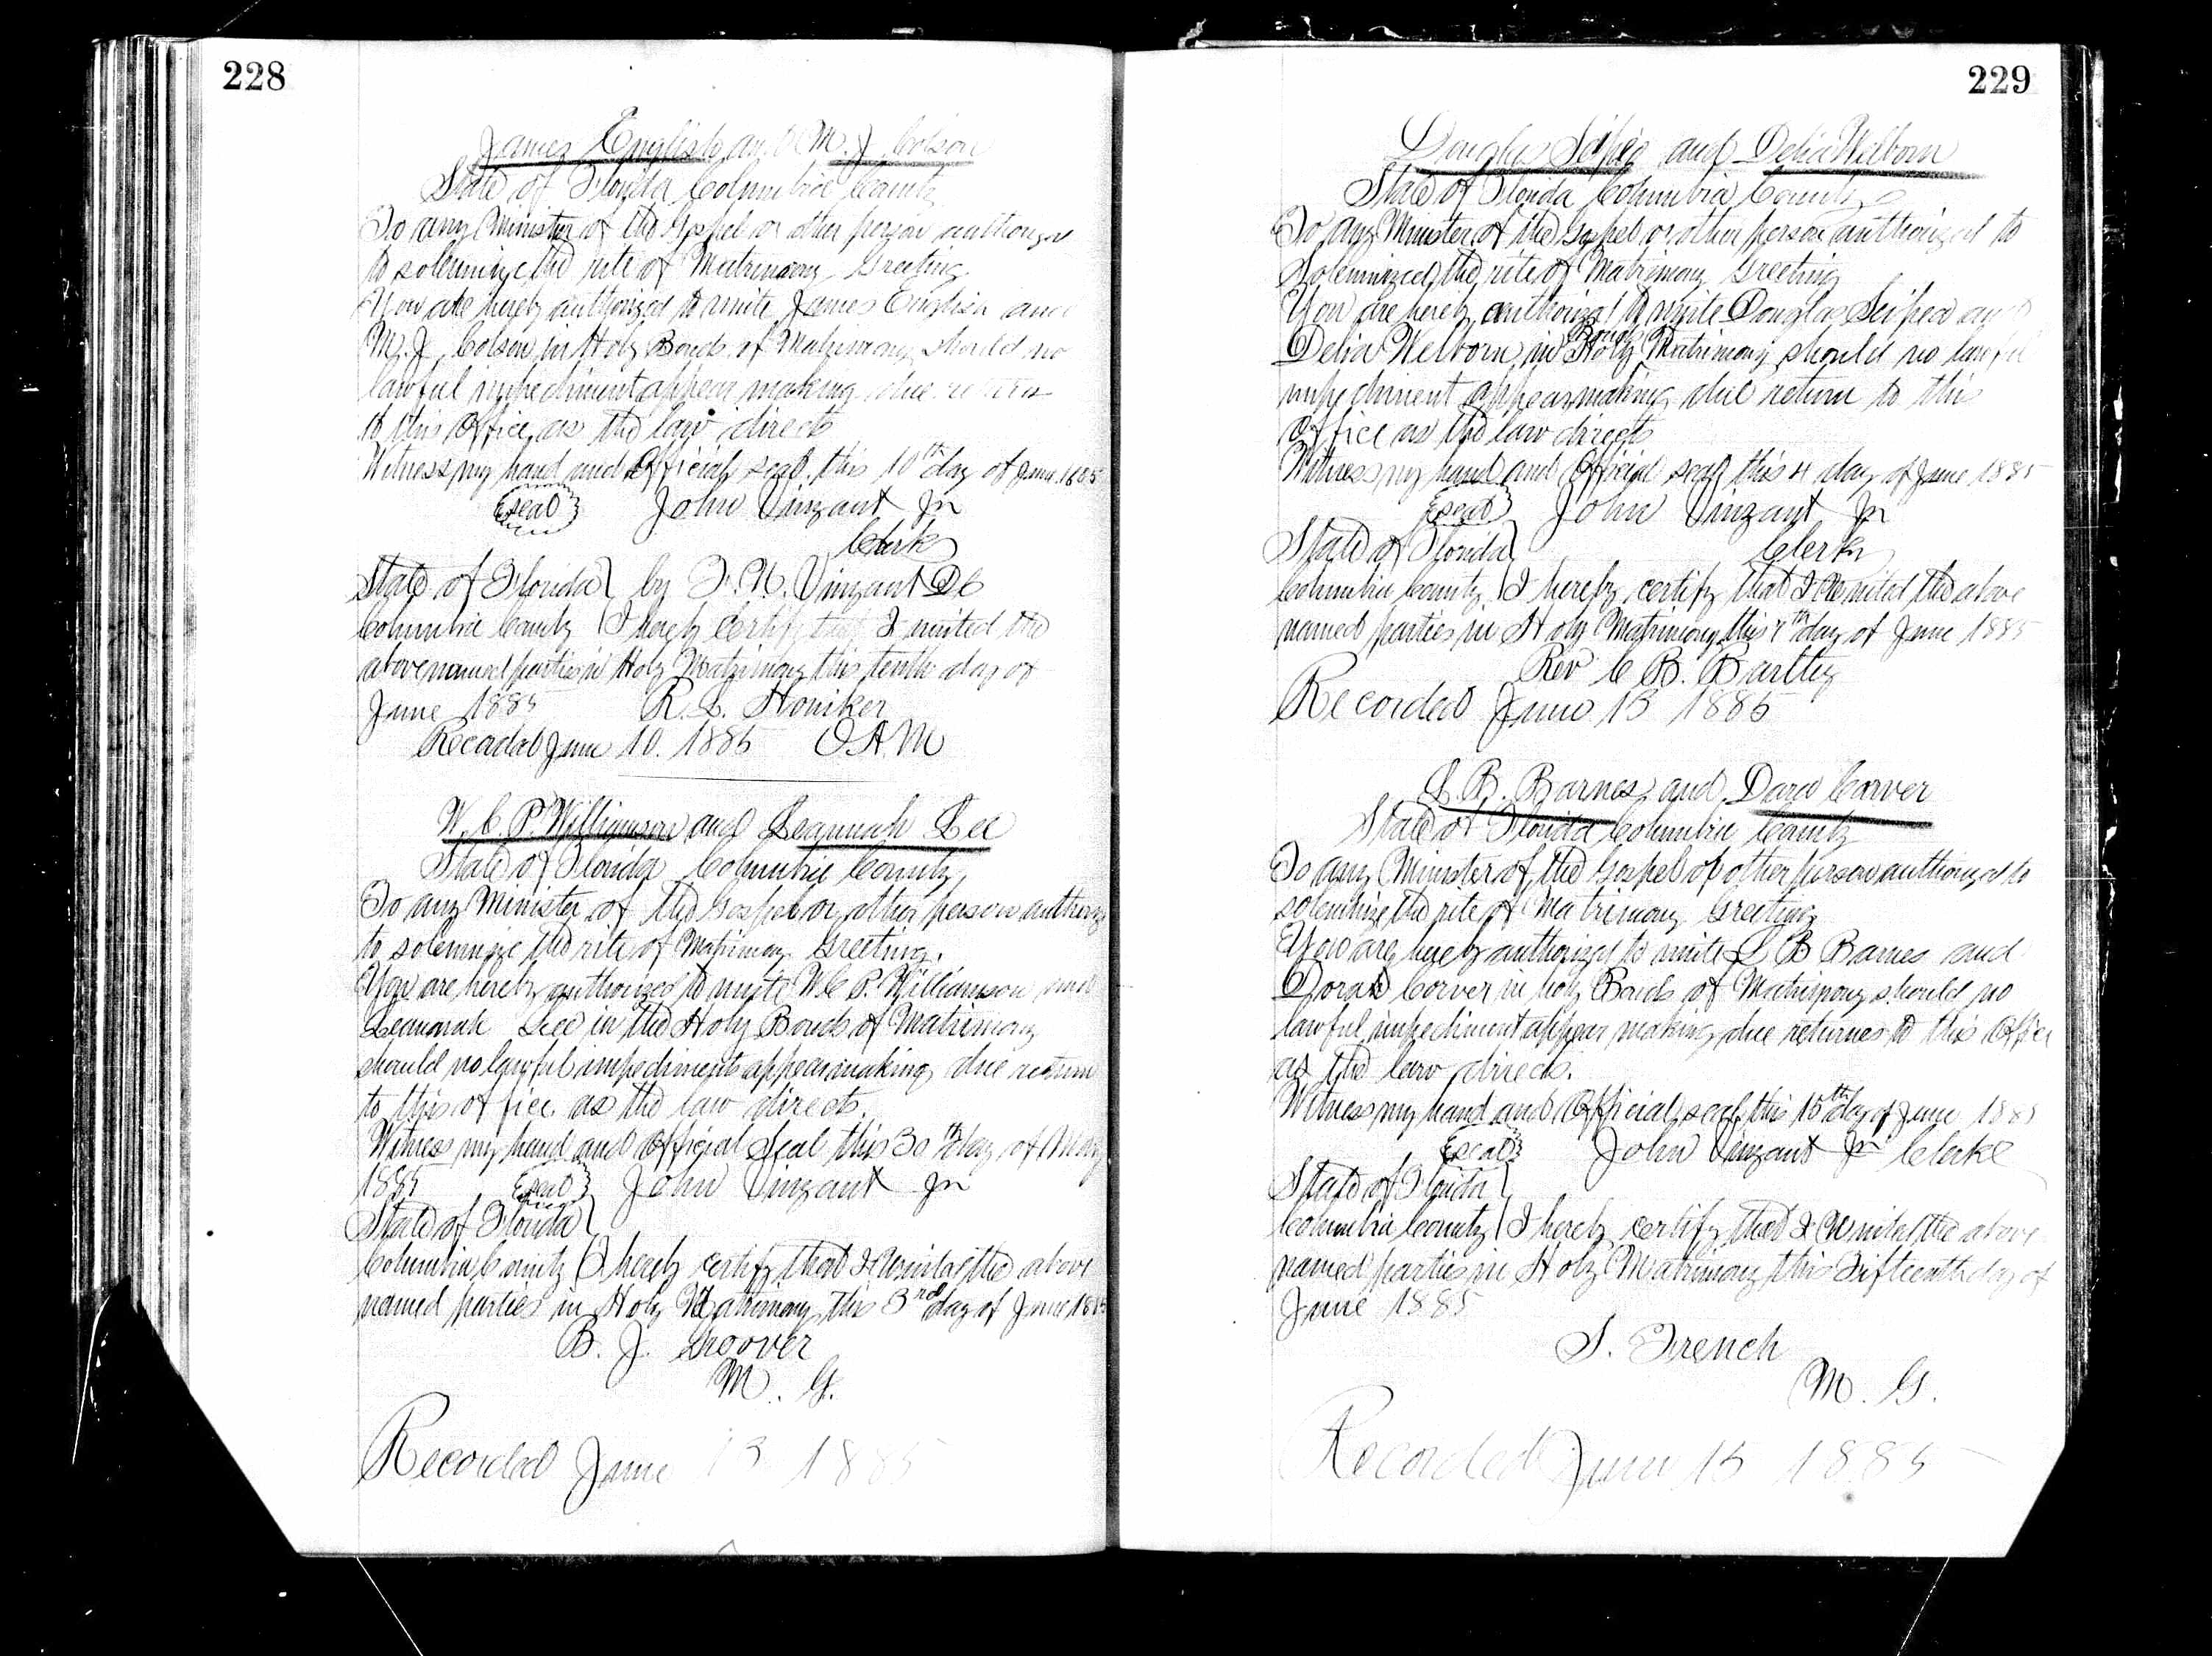 228
James English and M. J. Colson
State of Florida Columbia County
To any Minister of the Gospel or other person authorized
to solemnize the rite of Matrimony Greeting
You are hereby authorized to unite James English and
M. J. Colson in Holy Bonds of Matrimony should no
lawful impediment appear making due return
to this Office as the law directs
Witness my hand and Official seal this 10th day of June 1885
Seal John Vinzant Jr
Clerk
State of Florida by F. W. Vinzant DC
Columbia County I hereby certify that I united the
above named parties in Holy Matrimony this tenth day of
June 1885 R. L. Honiker
Recorded June 10. 1885 O.A.M
W. C. P. Williamson and Leannah Lee
State of Florida Columbia County
To any Minister of the Gospel or other person authorize
to solemnize the rite of Matrimony Greeting.
You are hereby authorized to unite W C P. Williamson and
Leannah Lee in the Holy Bonds of Matrimony
should no lawful impediments appear making due return
to this office as the law directs.
Witness my hand and Official Seal this 30th day of May
1885 Seal John Vinzant Jr
State of Florida
Columbia County I hereby certify that I United the above
named parties in Holy Matrimony this 3rd day of June 1885
B. J. Groover
M. G.
Recorded June 13 1885
229
Douglas and Delia Welborn
State of Florida Columbia County
To any Minister of the Gospel or other person authorized to
Solemnized the rite of Matrimony Greeting
You are hereby authorized to unite Douglas and
Delia Welborn in Bonds Holy Matrimony should no lawful
impediment appear making due return to this
Office as the law directs
Witness my hand and Official seal this 4 day of June 1885
Seal John Vinzant Jr
State of Florida Clerk
Columbia County I hereby certify that I United the above
named parties in Holy Matrimony this 7th day of June 1885
Rev C B. Bartley
Recorded June 13 1885
L. B. Barnes and Dora Carver
State of Florida Columbia County
To any Minister of the Gospel or other person authorized to
solemnize the rite of Matrimony Greeting
You are hereby authorized to unite L B Barnes and
Dorah Corver in holy Bonds of Matrimony should no
lawful impediment appear making due returnes to this Office
as the law directs.
Witness my hand and Official seal this 15th day of June 1885
Seal John Vinzant Jr Clerke
State of Florida
Columbia County I hereby certify that I United the above
named parties in Holy Matrimony this Fifteenth day of
June 1885
S. French
M. G.
Recorded June 15 1885